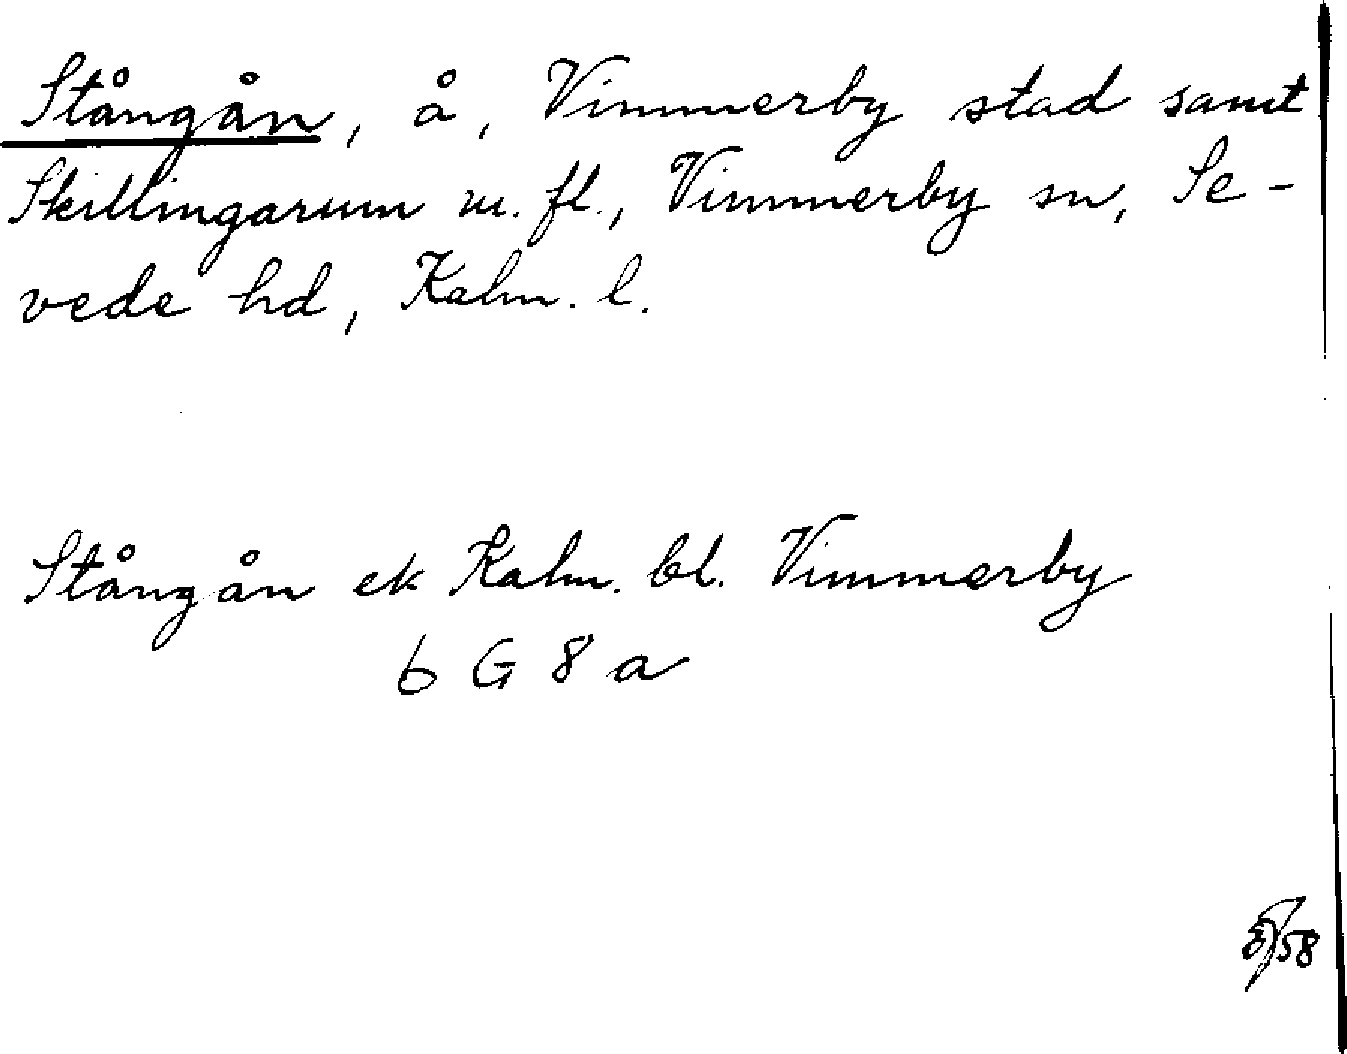 Stångån, å, Vimmerby stad samt
Skillingarum m. fl., Vimmerby sn, Se-
vede hd, Kalm. l.
Stångån ek Kalm. bl. Vimmerby
6 G 8 a
58